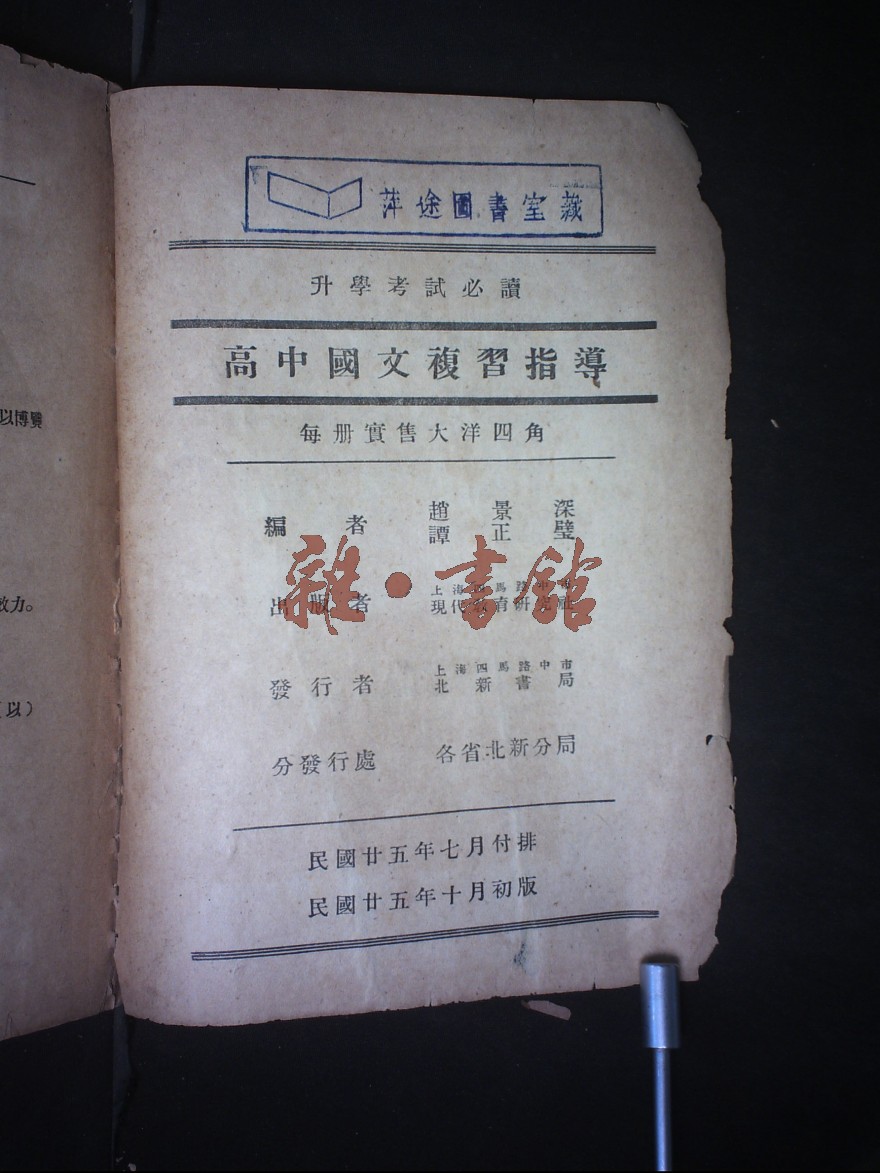 以博覽
效力。
以）
萍途圖書室藏
升學考試必讀
高中國文複習指導
每册實售大洋四角
編者 趙景深
譚正璧
雜·書館
上海四馬路中市
出版者 現代教育研究社
上海四馬路中市
發行者 北新書局
分發行處 各省北新分局
民國廿五年七月付排
民國廿五年十月初版